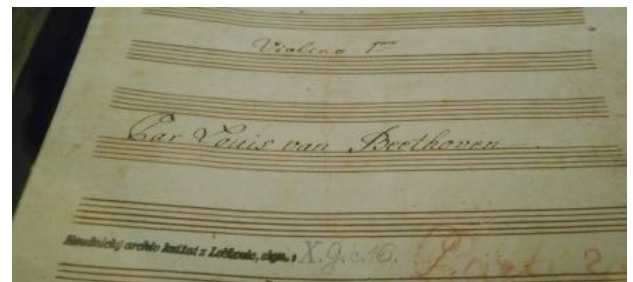 Violino 1mo
Par Louis van Beethoven
Roudnický archiv knížat z Lobkovic, sign.: X. G. c. 16.